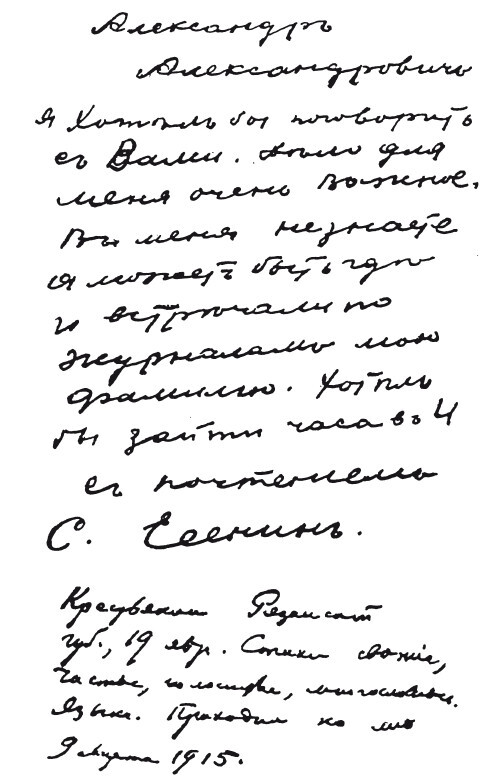 Александръ
Александровичъ
я Хотѣлъ бы поговорить
съ Вами. Дѣло для
меня очень важное.
Вы меня не знаете
а можетъ быть гдѣ
и встрѣчали по
журналамъ мою
фамилию. Хотѣлъ
бы зайти часа въ 4
съ почтениемъ
С. Есенинъ.
Крестьянин Рязанской
губ., 19 лет. Стихи свежие,
чистые, голосистые, многословные.
Язык. Приходил ко мне
9 марта 1915.